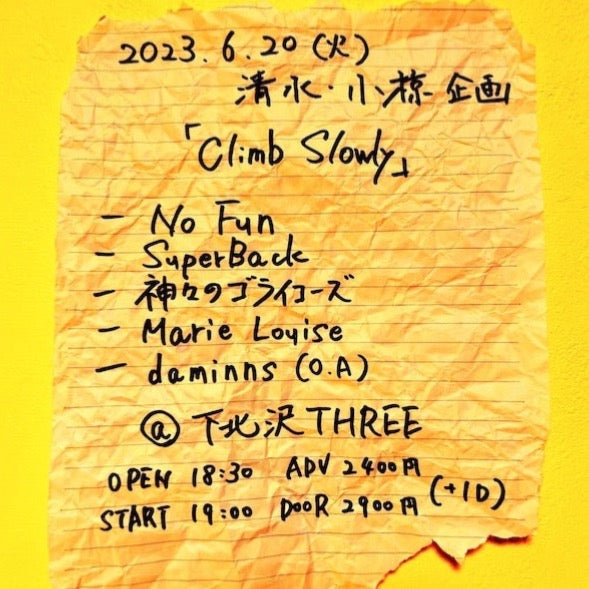 2023.6.20(火)
清水・小椋 企画
「Climb Slowly」
― No Fun
― SuperBack
― 神々のゴライコーズ
― Marie Louise
― daminns (O.A)
@ 下北沢THREE
OPEN 18:30 ADV 2400円
START 19:00 DOOR 2900円 (+1D)